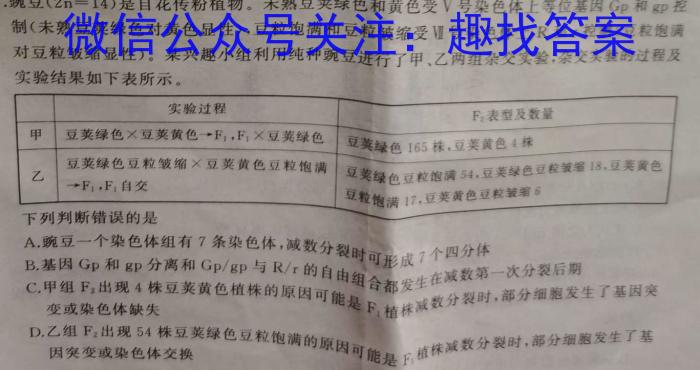 豌豆(2n=14)是自花传粉植物。未熟豆荚绿色和黄色受Ⅴ号染色体上等位基因Gp和gp控
制(未熟 绿色对黄色显性) 豆粒饱满和豆粒皱缩受Ⅶ 豆粒饱满
微信公众号关注:趣找答案
对豆粒皱缩显性)。某兴趣小组利用纯种豌豆进行了甲、乙两组杂交实验,杂交实验的过程及
实验结果如下表所示。
实验过程 F₂表型及数量
甲 豆荚绿色×豆荚黄色→F₁,F₁×豆荚绿色 豆荚绿色165株,豆荚黄色4株
乙 豆荚绿色豆粒皱缩×豆荚黄色豆粒饱满 豆荚绿色豆粒饱满54,豆荚绿色豆粒皱缩18,豆荚黄色
→F₁,F₁自交 豆粒饱满17,豆荚黄色豆粒皱缩6
下列判断错误的是
A.豌豆一个染色体组有7条染色体,减数分裂时可形成7个四分体
B.基因Gp和gp分离和Gp/gp与R/r的自由组合都发生在减数第一次分裂后期
C.甲组F₂出现4株豆荚黄色植株的原因可能是F₁植株减数分裂时,部分细胞发生了基因突
变或染色体缺失
D.乙组F₂出现54株豆荚绿色豆粒饱满的原因可能是F₁植株减数分裂时,部分细胞发生了基
因突变或染色体交换